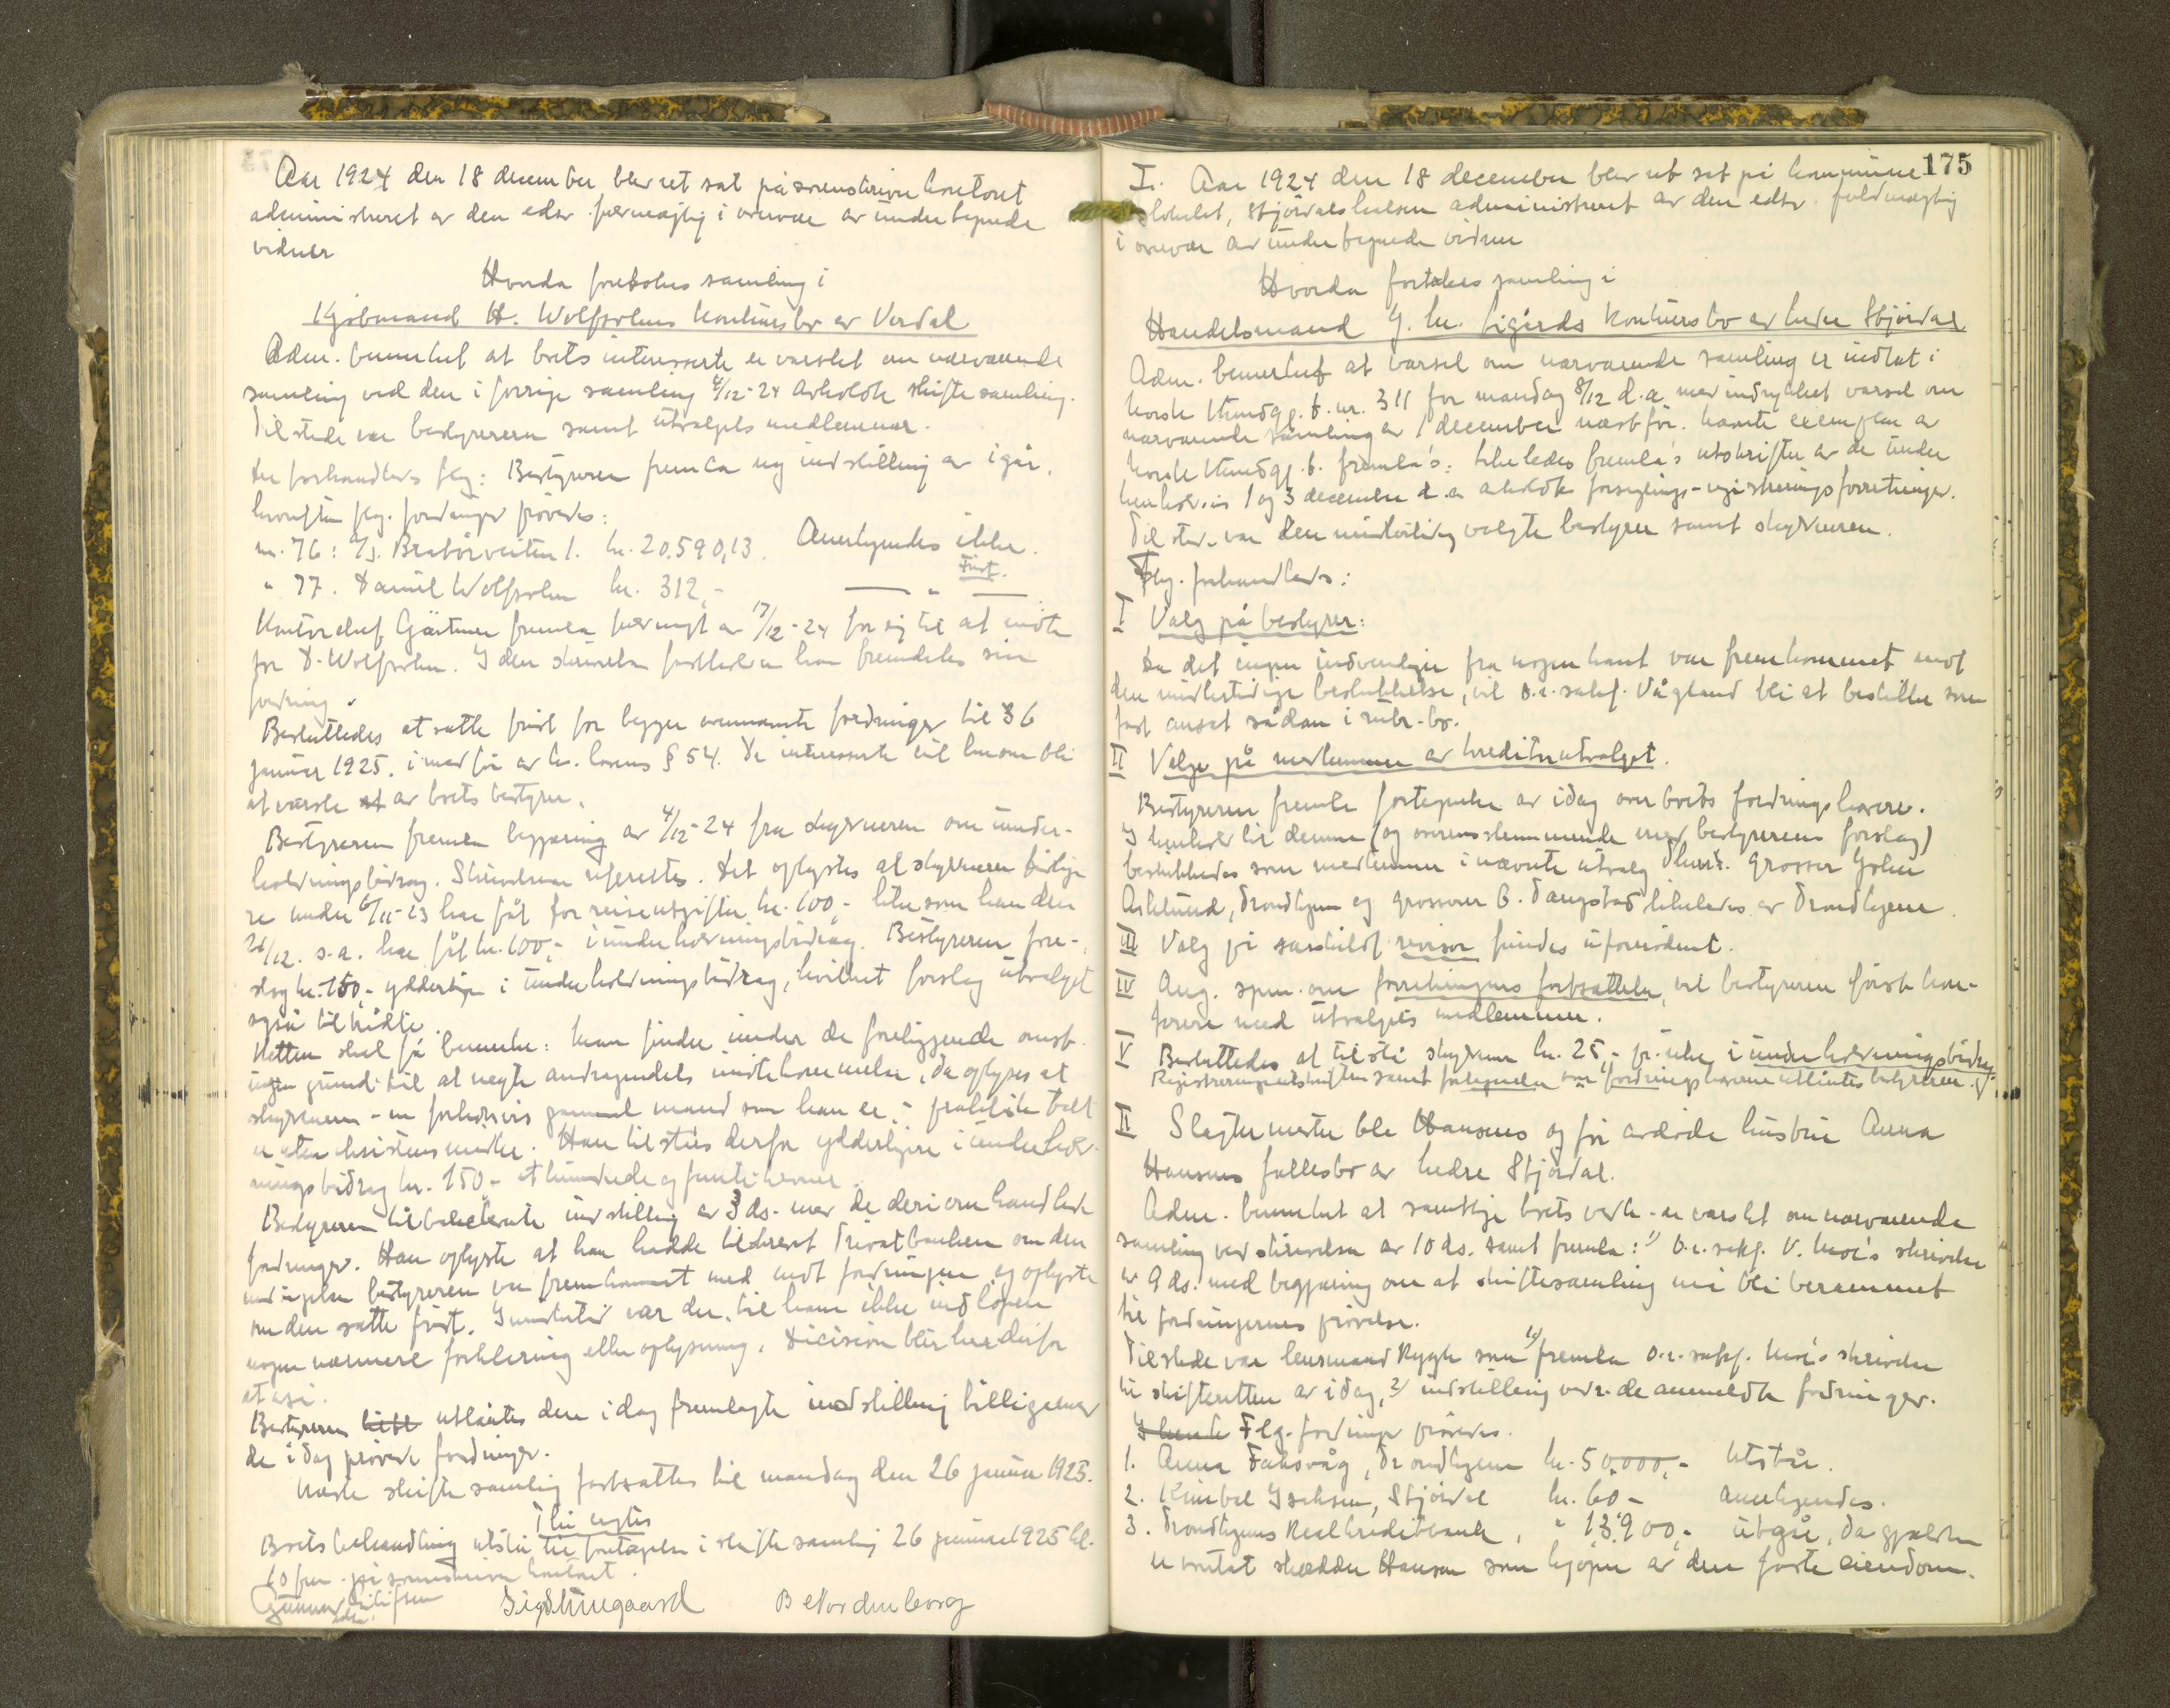 Aar 1924 den 18 december blev ret sat på sorenskriverkontoret
administreret av den edsv. fuldmægtig i overvær av undertegnede
vidner
Hvorda foretokes samling i
Kjøbmand H. Wolfsohns konkursbo av Verdal
Adm. bemerket at boets interesserte er varslet om nærværende
samling ved den i forrige samling 4/12-24 avholdte skiftesamling.
Tilstede var bestyreren samt utvalgets medlemmer.
Der forhandledes flg: Bestyreren fremla ny indstilling av igår,
hvorefter flg. fordringer prøvedes:
nr. 76: A/S. Bratörveiten 1. kr. 20.590,13. Anerkjendes ikke.
Frist.
" 77. Daniel Wolfsohn kr. 312,- — " —
Kontorchef Gärtner fremla fuldmagt av 17/12-24 for sig til at møte
for D. Wolfsohn. I den skrivelse fastholder han fremdeles sin
fordring.
Besluttedes at sætte frist for begge ovennævnte fordringer til 36
januar 1925. i medfør av k. lovens § 54. De interesserte vil herom bli
at varsle at av boets bestyrer.
Bestyreren fremla begjæring av 4/12-24 fra skyldneren om under-
holdningsbidrag. Skrivelsen refertes. Det oplystes at skyldneren tidlige
re under 6/11-23 har fåt for reiseutgifter kr. 100,- likesom han den
21/12. s.a. har fåt kr. 100,- i underholdningsbidrag. Bestyreren fore-
slog kr. 150,- ydderligere i underholdningsbidrag, hvilket forslag utvalget
også tilrådte.
Retten skal få bemerke: man finder under de foreliggende omst.
ingen grund til at negte andragendets imøtekommelse, da oplyses at
skyldneren - en forholdsvis gammel mand som han er - praktisk talt
er uten eksistensmidler. Han tilståes derfor ydderligere i underhold-
ningsbidrag kr. 150,- et hundrede og femti kroner.
Bestyreren tilbakeleverte indstilling av 3 ds. med de deri omhandlede
fordringer. Han oplyste at han hadde tilskrevet Privatbanken om den
indsigelse bestyreren var fremkommet med mot fordringen og oplyste
om den satte frist. Imidlertid var der til ham ikke indløpen
nogen nærmere forklaring eller oplysning. Decision blir her derfor
at avsi.
Bestyreren utlåntes den i dag fremlagte indstilling tilligemed
de i dag prøvede fordringer.
Næste skiftesamling fastsattes til mandag den 26 januar 1925.
Thi vedtes
Boets behandling utstår til foretagelse i skiftesamling 26 januar 1925 kl.
10 fm. på sorenskriverkontoret.
Gunnar
Sig Stüegaard B Nordenborg
175
I. Aar 1924 den 18 december blev ret sat på kommune
lokalet, Stjørdalshalsen administrert av den edsv. fuldmægtig
i overvær av undertegnede vidner
Hvorda foretokes samling i
Handelsmand J. M. Ligårds konkursbo av Nedre Stjørdal
Adm. bemerket at varsel om nærværende samling er indtat i
Norsk Kundgj. t. nr. 311 for mandag 8/12 d.a. med indrykket varsel om
nærværende samling av 1 december næstfør. Nævnte exemplar av
Norsk Kundgj. t. fremla's: likeledes fremla's utskrifter av de under
henholdsvis 1 og 3 december d.a. avholdte forseglings-registreringsforretninger.
Tilstede var den midlertidig valgte bestyrer samt skyldneren.
Flg. forhandledes:
I Valg på bestyrer:
Da det ingen indvendinger fra nogen kant var fremkommet mot
den midlertidige beskikkelse, vil o.r. sakf. Vågland bli at beskikke som
fast ansat sådan i rubr. bo.
II Valg på medlemmer av kreditorutvalget.
Bestyreren fremla fortegnelse av idag over boets fordringshavere.
I henhold til denne (og overensstemmende med bestyrerens forslag)
beskikkedes som medlemmer i nævnte utvalg d'herr. grosser Johan
Asklund, Trondhjem og grosserer B. Tangstad likeledes av Trondhjem.
III Valg på særskildt revisor findes ufornødent.
IV Ang. spm. om forretningens fortsættelse, vil bestyreren først kon-
ferere med utvalgets medlemmer.
V Besluttedes at tilstå skyldneren kr. 25,- pr. uke i underholdningsbidrag.
Registreringsutskriften samt fortegnelse over fordringshaverne utlåntes bestyreren.
II Slagtermester Ole Hansens og før avdøde hustru Anna
Hansens fællesbo av Nedre Stjørdal.
Adm. bemerket at samtlige boets vedk. er varslet om nærværende
samling ved skrivelse av 10 ds. samt fremla: 1) O.r. sakf. V. Moe's skrivelse
av 9 ds. med begjæring om at skiftesamling må bli berammet
til fordringernes prøvelse.
Tilstede var lensmand Rygh som 1) fremla o.r. sakf. Moe's skrivelse
til skifteretten av idag, 2) indstilling vedr. de anmeldte fordringer.
Flg. fordringer prøvedes.
1. Anna Faksvåg, Trondhjem kr. 50,000,- Utstår.
2. Kimbel Isaksen, Stjørdal kr. 60,- Anerkjendes.
3. Trondhjems Realkreditbank, " 13,900,- utgår, da gjælden
er overtat skrædder Hansen som kjøper av den faste eiendom.